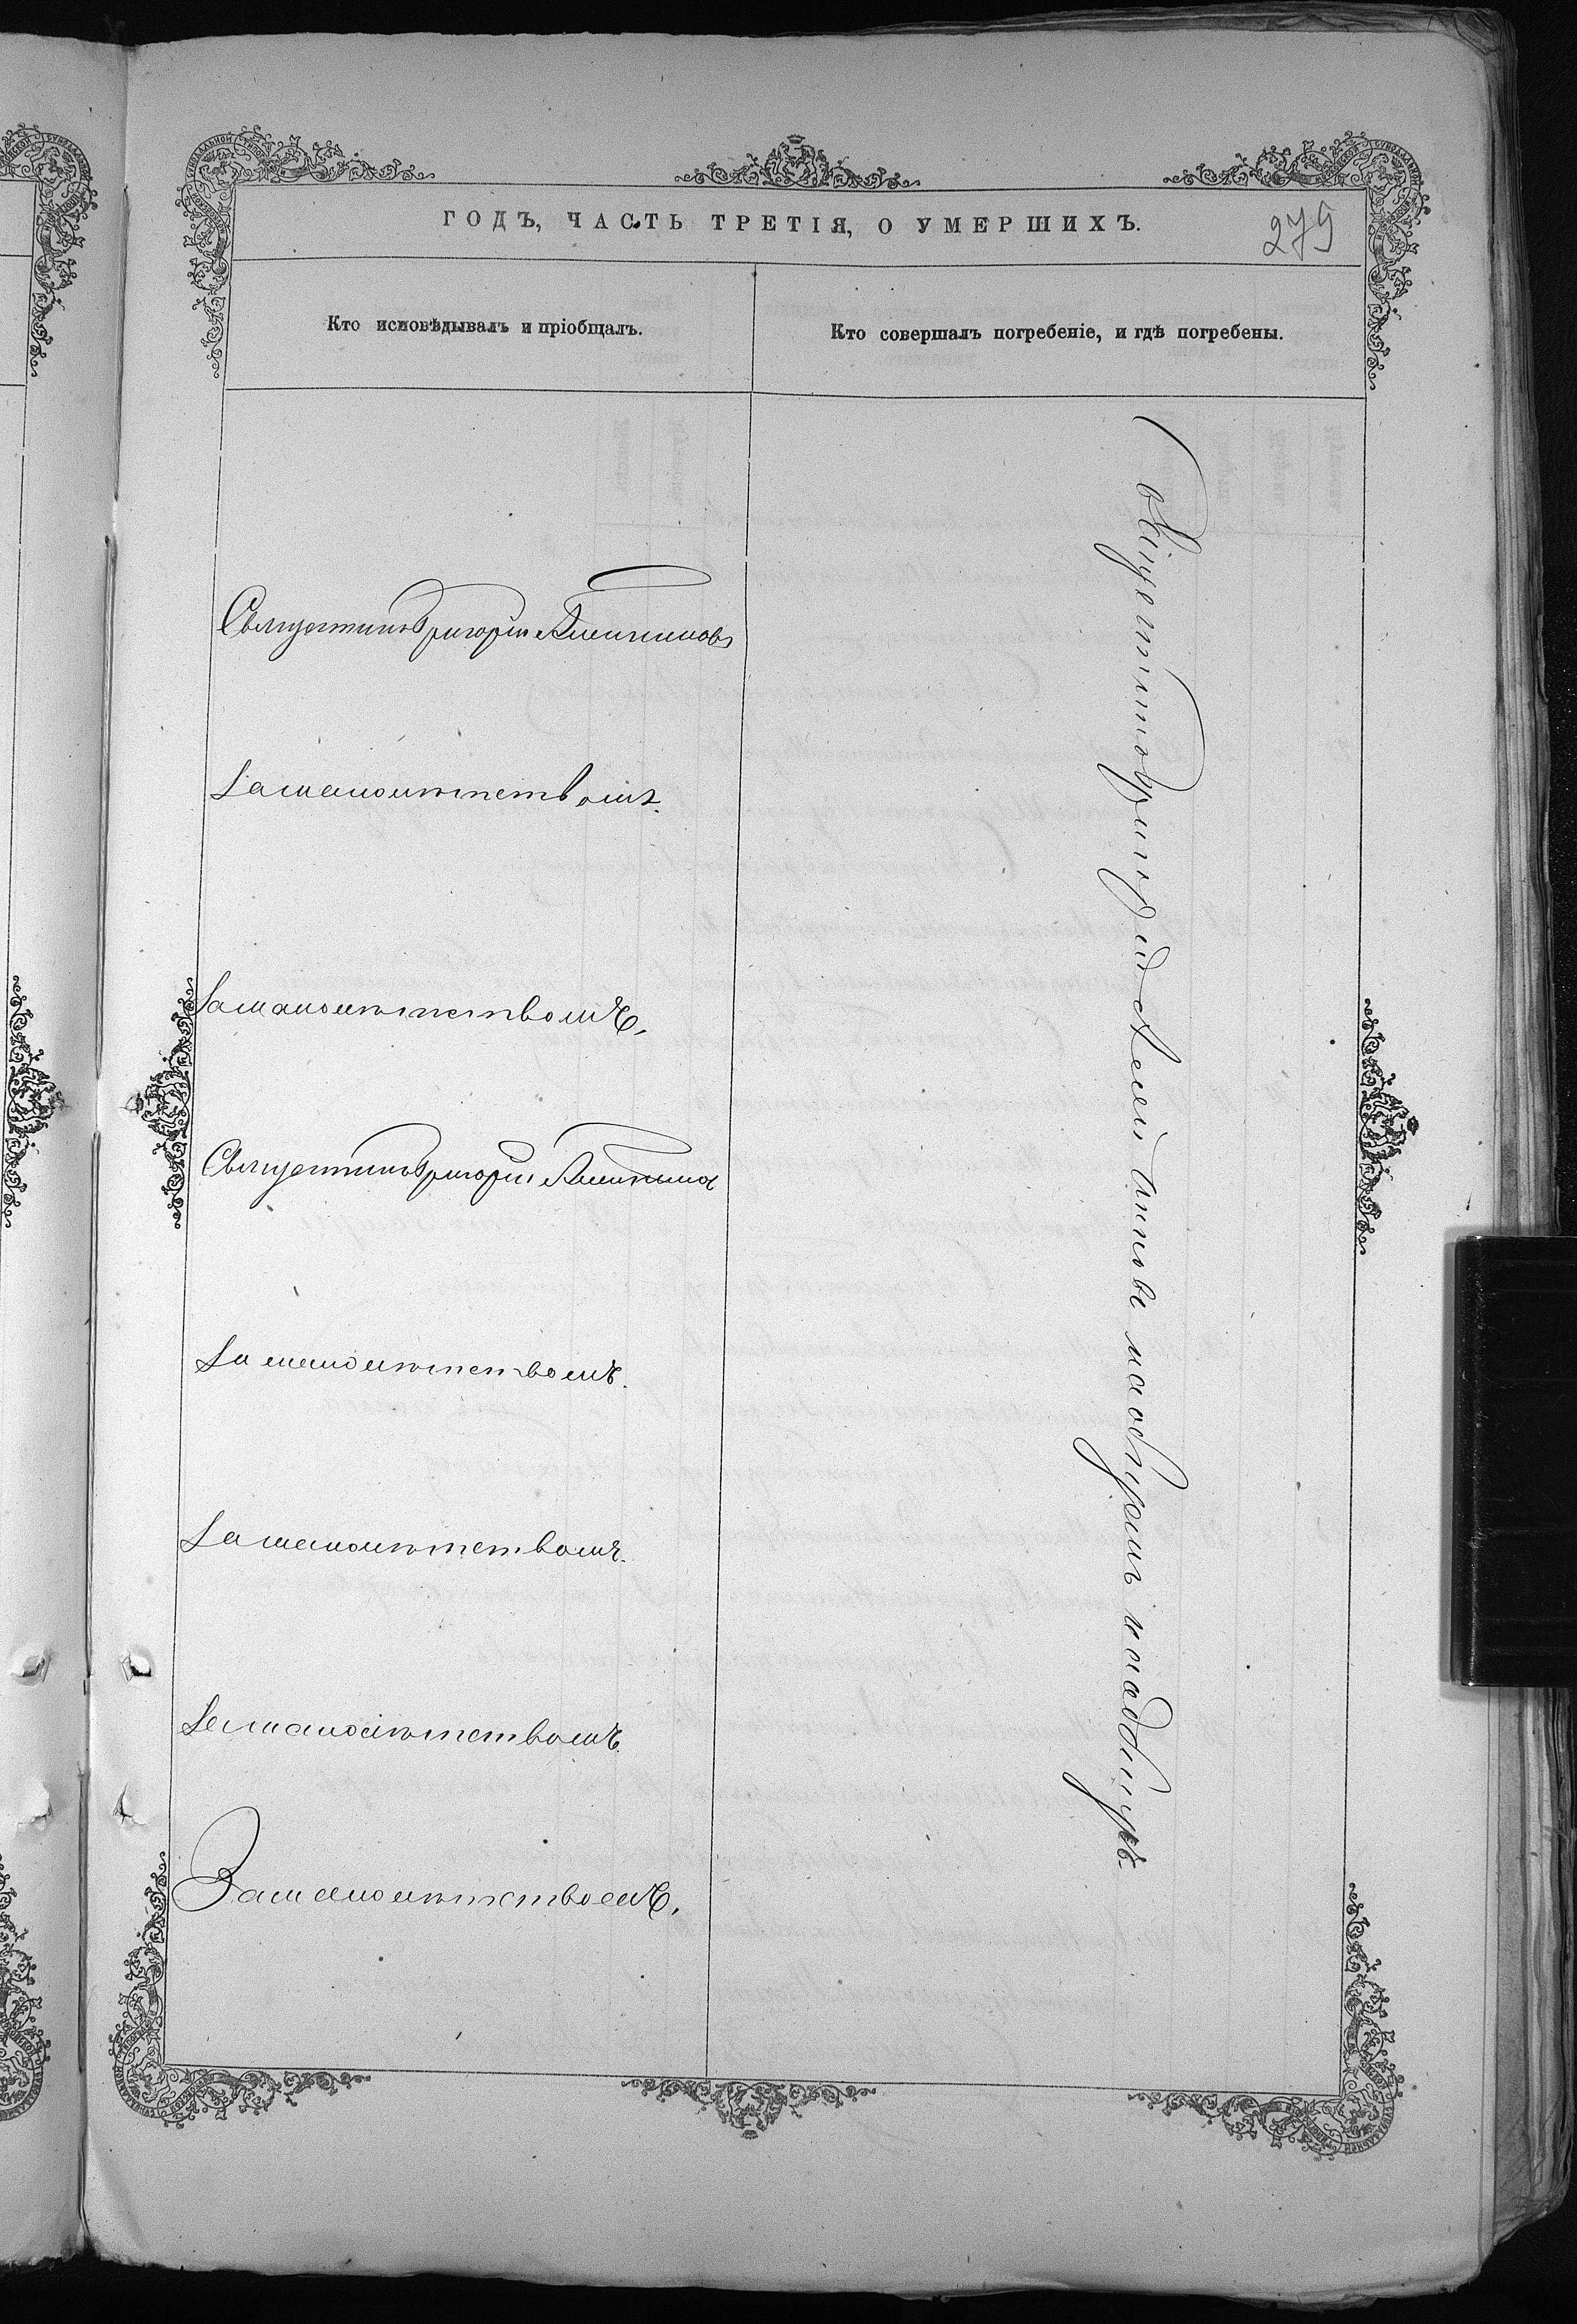 ГОДЪ, ЧАСТЬ ТРЕТІЯ, О УМЕРШИХЪ.
279
Кто исповѣдывалъ и пріобщалъ.
Кто совершалъ погребеніе, и гдѣ погребены.
Священникъ Григорій
За малолѣтствомъ.
За малолѣтствомъ.
Священникъ Григорій
За малолѣтствомъ.
За малолѣтствомъ.
За малолѣтствомъ.
За малолѣтствомъ.
Священникъ Григорій на общемъ кладбищѣ.